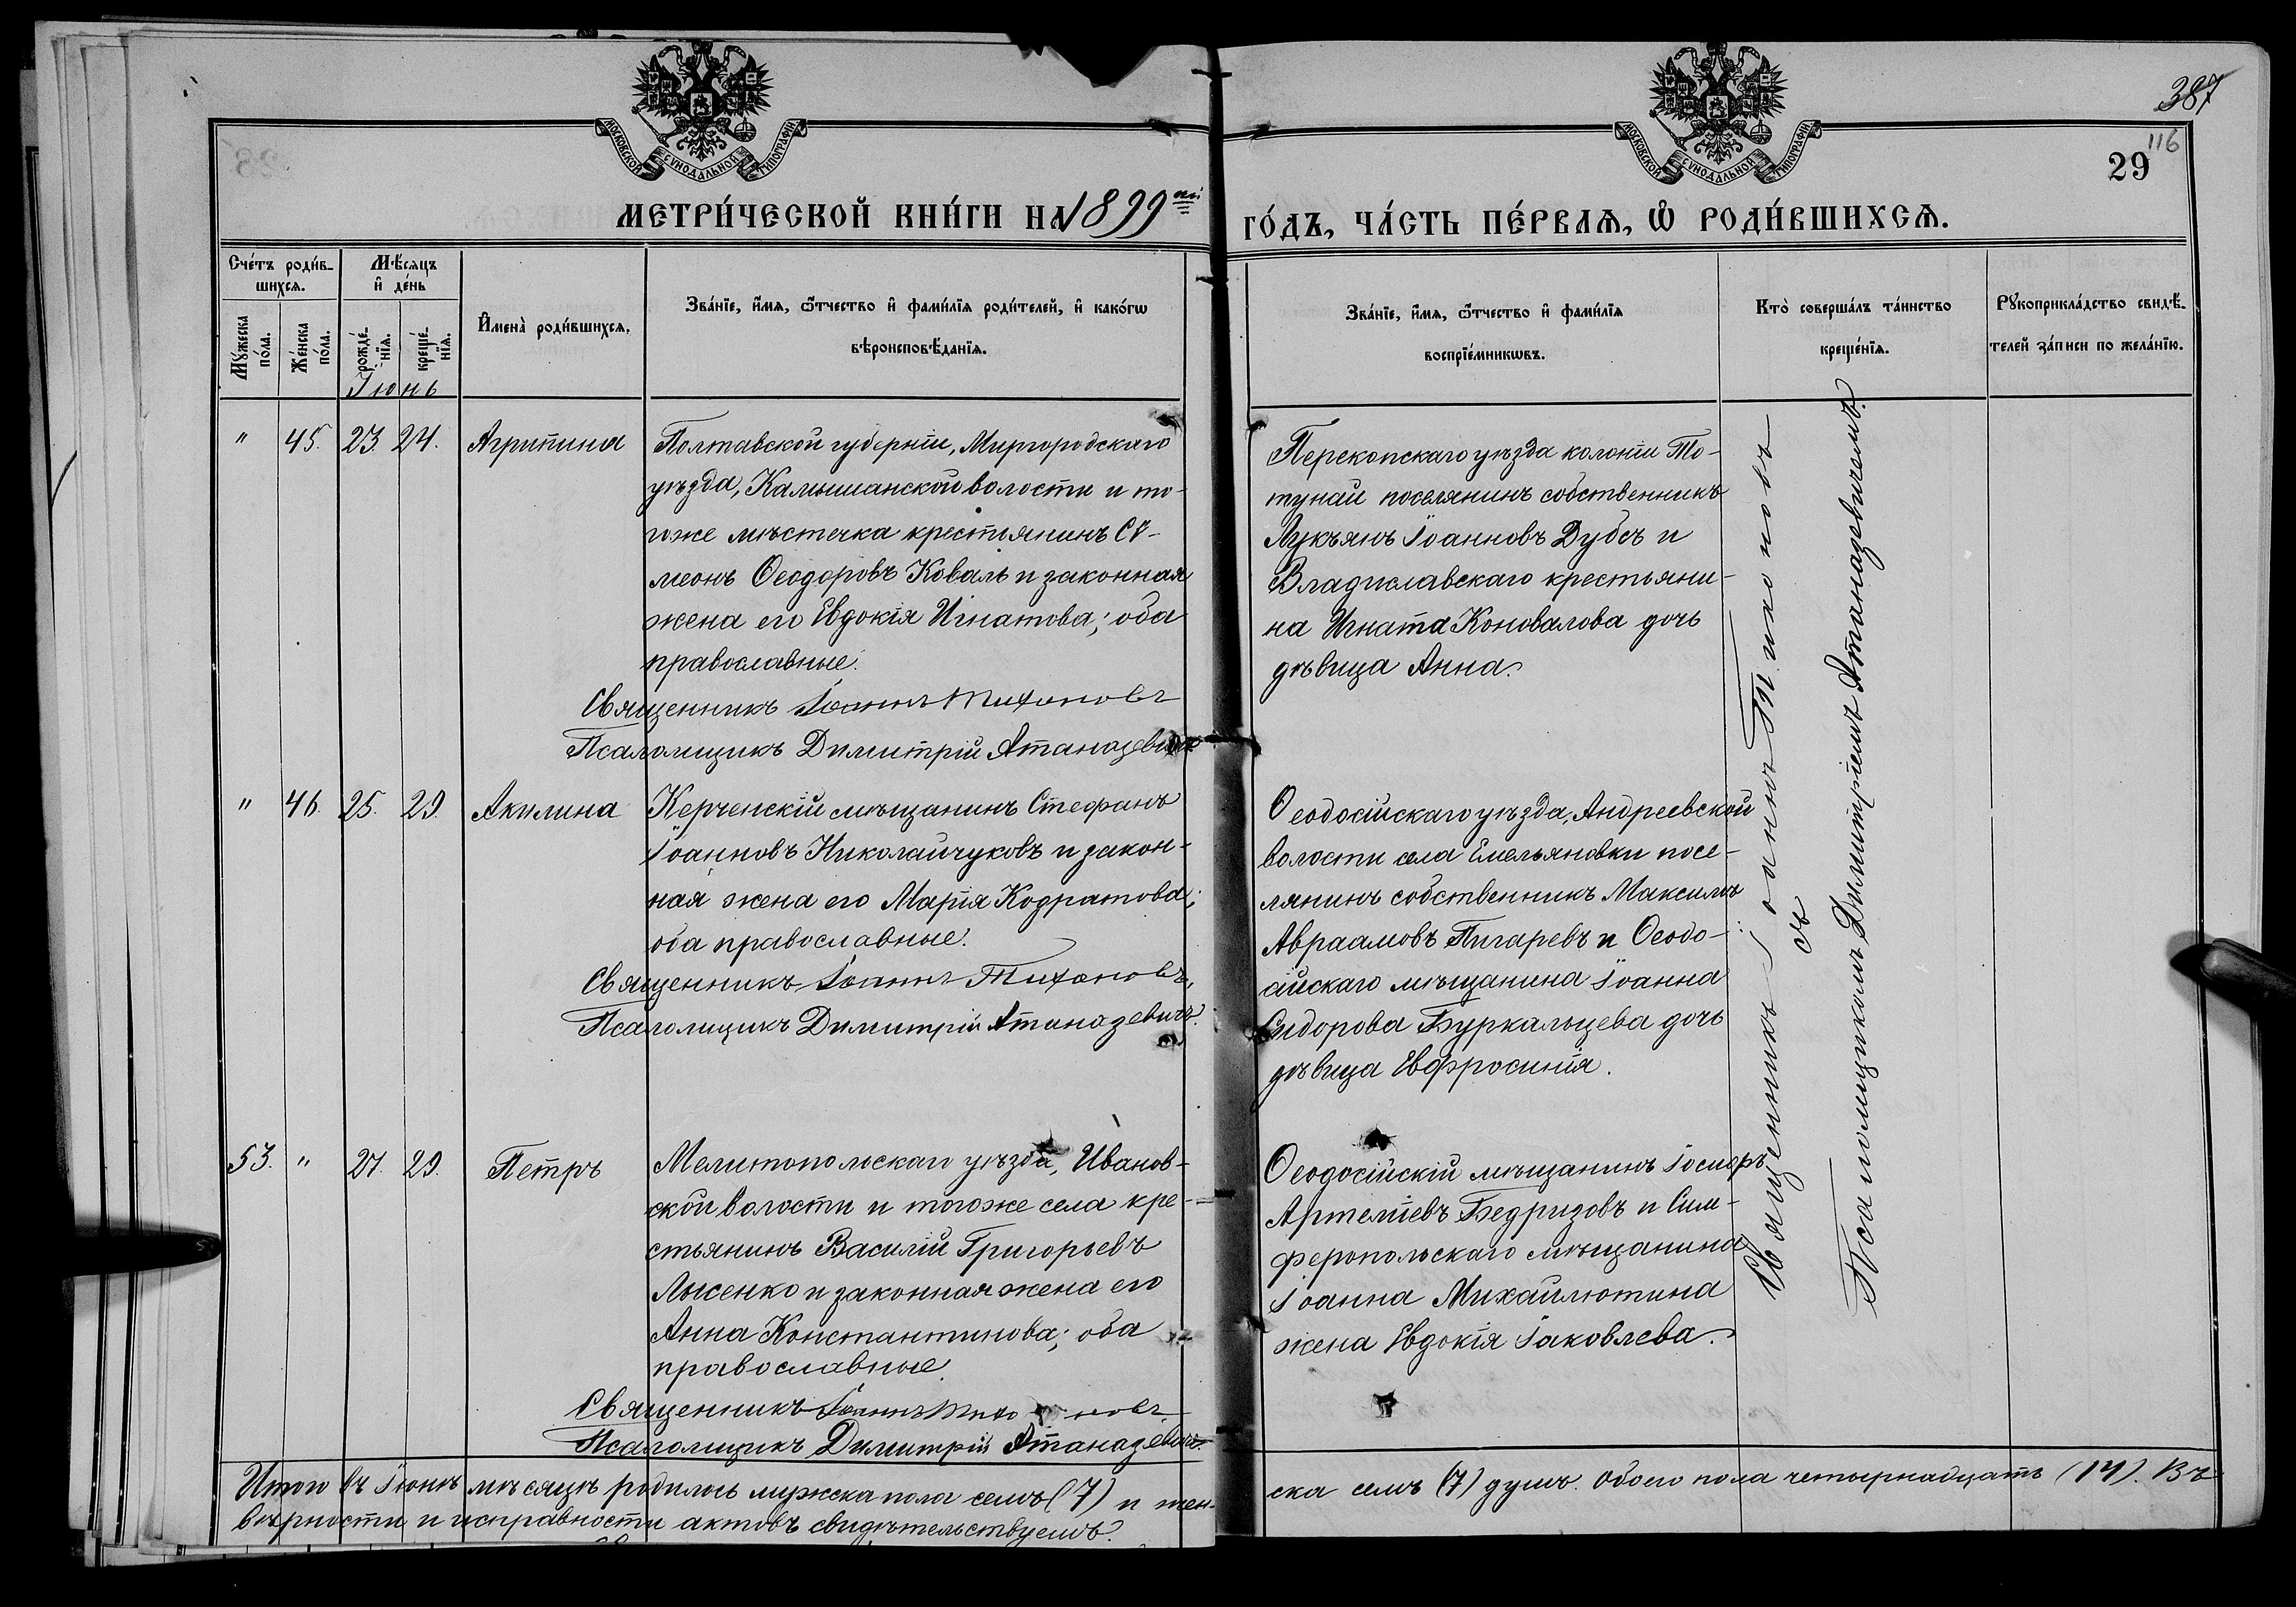 387
116
29
МОСКОВСКОЙ СѴНОДАЛЬНОЙ ТИПОГРАФІИ
МОСКОВСКОЙ СѴНОДАЛЬНОЙ ТИПОГРАФІИ
МЕТРИ́ЧЕСКОЙ КНИ́ГИ НА 1899 го́дъ, ча́сть пе́рваѧ, ѡ҆ роди́вшихсѧ.
Сче́тъ роди́в-
шихсѧ.
Мѣ́сяцъ
и҆ де́нь
Му́жеска
по́ла.
Же́нска
по́ла.
рожде́-
нїѧ.
креще́-
нїѧ.
И҆мена̀ роди́вшихсѧ.
Зва́нїе, и҆́мѧ, ѻ҆́тчество и҆ фами́лїѧ роди́телей, и҆ како́гѡ
вѣроисповѣ́данїѧ.
Зва́нїе, и҆́мѧ, ѻ҆́тчество и҆ фами́лїѧ
воспрїе́мникѡвъ.
Кто̀ соверша́лъ та́инство
креще́нїѧ.
Рꙋкоприкла́дство свидѣ́-
телей за́писи по жела́нїю.
Іюнь
" 45. 23. 24. Агрипина
Полтавской губерніи, Миргородскаго
уѣзда, Камышанской волости и то-
гоже мѣстечка крестьянинъ Си-
меонъ Ѳеодоровъ Коваль и законная
жена его Евдокія Игнатова; оба
православные.
Священникъ Іоаннъ Тихоновъ
Псаломщикъ Димитрій Атаназевичъ
Перекопскаго уѣзда колоніи То-
тунай поселянинъ собственникъ
Лукъянъ Іоанновъ Дубсъ и
Владиславскаго крестьяни-
на Игната Коновалова дочь
дѣвица Анна.
" 46. 25. 29. Акилина
Керченскій мѣщанинъ Стефанъ
Іоанновъ Николайчуковъ и закон-
ная жена его Марія Кодратова;
оба православные.
Священникъ Іоаннъ Тихоновъ,
Псаломщикъ Димитрій Атаназевичъ.
Ѳеодосійскаго уѣзда, Андреевской
волости села Емельяновки посе-
лянинъ собственникъ Максимъ
Авраамовъ Пигаревъ и Ѳеодо-
сійскаго мѣщанина Іоанна
Сидорова Буркальцева дочь
дѣвица Евфросинія.
53. " 27. 29. Петръ
Мелитопольскаго уѣзда, Иванов-
ской волости и тогоже села кре-
стьянинъ Василій Григорьевъ
Лысенко и законная жена его
Анна Константинова; оба
православные.
Священникъ Іоаннъ Тихоновъ
Псаломщикъ Димитрій Атаназевичъ.
Ѳеодосійскій мѣщанинъ Іосифъ
Бедризовъ и Сим-
феропольскаго мѣщанина
Іоанна Михайлютина
жена Евдокія Іаковлева.
Священникъ Іоаннъ Тихоновъ
съ
Псаломщикомъ Димитріемъ Атаназевичемъ.
Итого въ Іюнѣ мѣсяцѣ родилось мужеска пола семь (7) и жен-
ска семь (7) душъ. Обоего пола четырнадцать (14). Въ
вѣрности и исправности актовъ свидѣтельствуемъ.